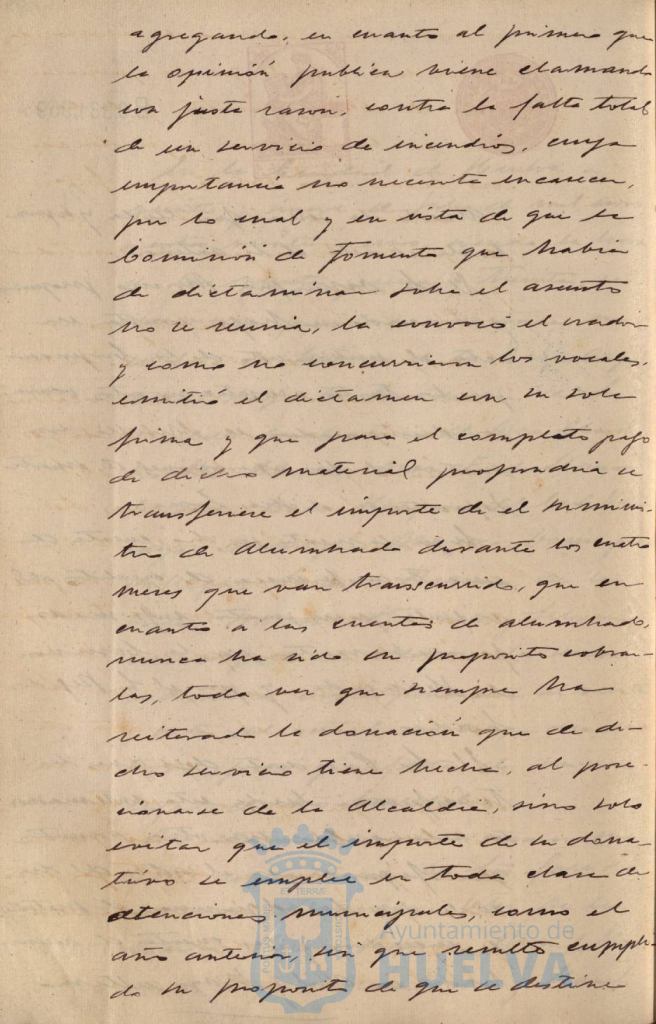 agregando, en cuanto al primero que
la opinión publica viene clamando
con justa razon, contra la falta total
de un servicio de incendios, cuya
importancia no necesita encarecer,
por lo cual y en vista de que la
Comisión de Fomento que habia
de dictaminar sobre el asunto
no se reunia, la convocó el orador
y como no concurrieran los vocales,
emitió el dictamen con su sola
firma y que para el completo pago
de dicho material propondria se
transfiriese el importe de el suminis-
tro de Alumbrado durante los cuatro
meses que van transcurrido, que en
cuanto a las cuentas de alumbrado,
nunca ha sido su proposito cobrar-
las, toda vez que siempre ha
reiterado la donación que de di-
cho servicio tiene hecha, al pose-
cionarse de la Alcaldia, sino solo
evitar que el importe de su dona-
tivo se emplee en toda clase de
atenciones municipales, como el
año anterior, sin que resulte cumpli-
do su proposito de que se destine
Ayuntamiento de
HUELVA